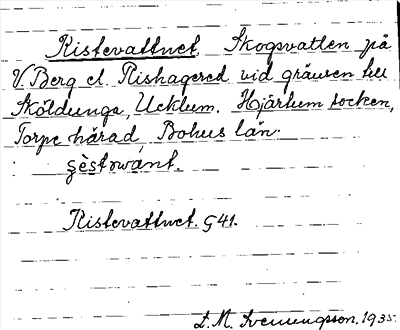 Ristevattnet. Skogsvatten på
V. Berg el. Rishagered vid gränsen till
Sköldunga, Ucklum. Hjärtum socken,
Torpe härad, Bohus län.
Ristevattnet. G 41.
L. M. Svenungsson. 1935.